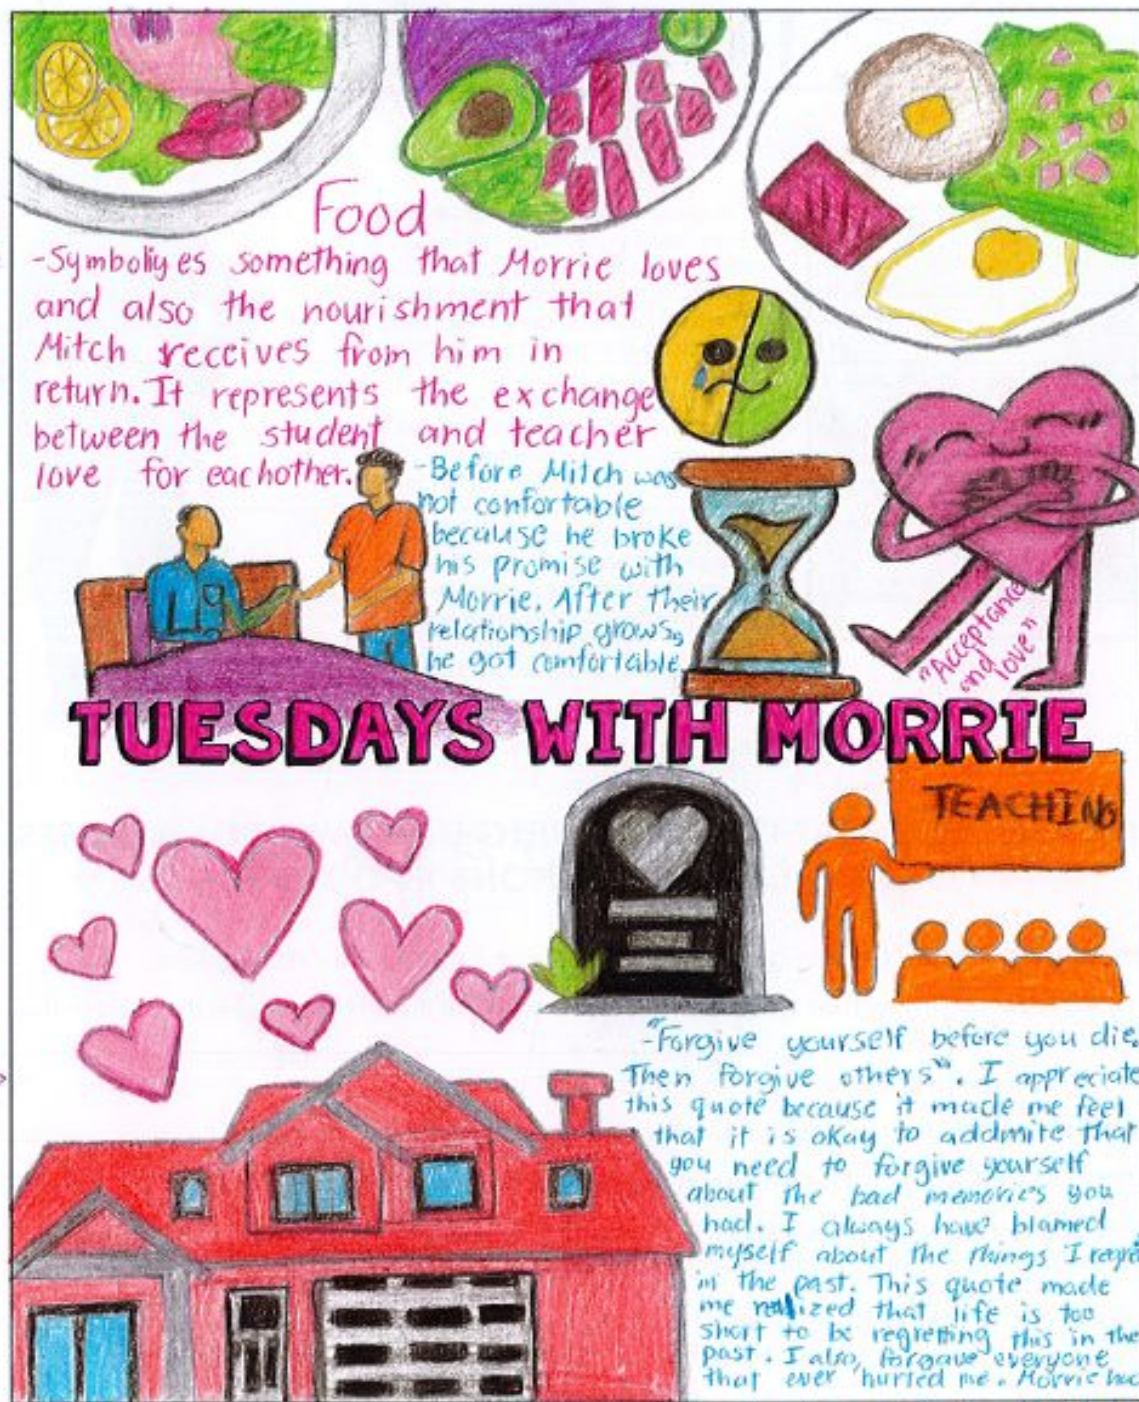 Food
-Symboliyes something that Morrie loves
and also the nourishment that
Mitch receives from him in
return. It represents the exchange
between the student and teacher
love for eachother.
-Before Mitch was
not confortable
because he broke
his promise with
Morrie. After their
relationship grows,
he got comfortable
"Acceptance
and
love"
TUESDAYS WITH MORRIE
TEACHING
-"Forgive yourself before you die.
Then forgive others". I appreciate
this quote because it made me feel
that it is okay to addmite that
you need to forgive yourself
about the bad memories you
had. I always have blamed
myself about the things I regre
in the past. This quote made
me realized that life is too
short to be regretting this in the
past. I also, forgave everyone
that ever hurted me. Morrie had